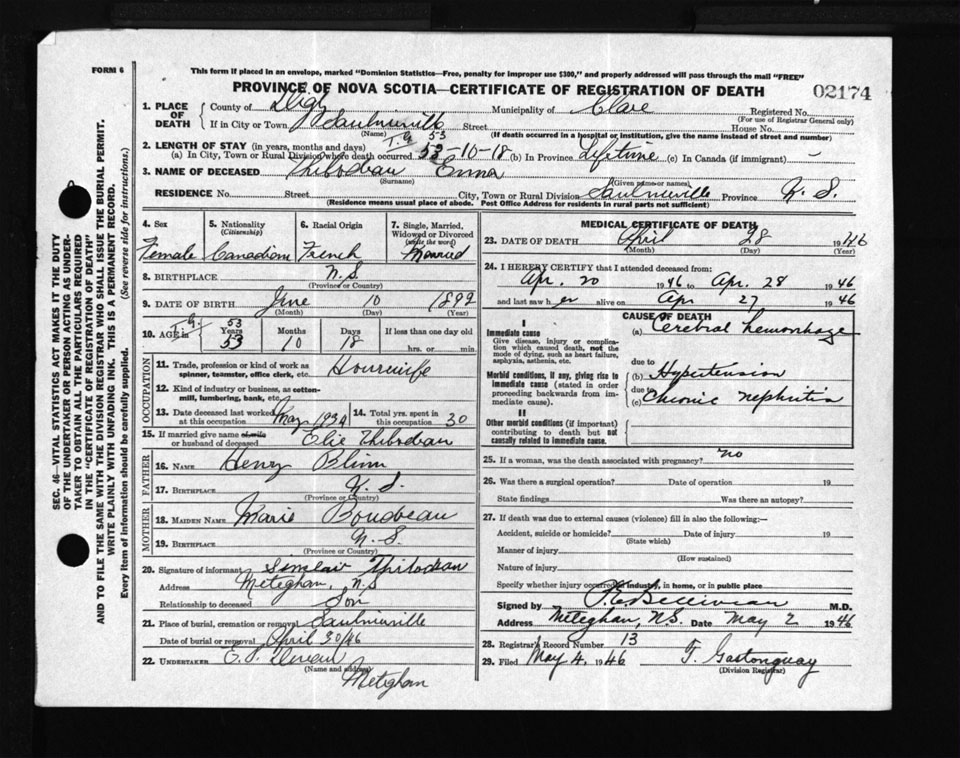 FORM 6
This form if placed in an envelope, marked "Dominion Statistics—Free, penalty for improper use $300," and properly addressed will pass through the mail "FREE"
PROVINCE OF NOVA SCOTIA—CERTIFICATE OF REGISTRATION OF DEATH
02174
1. PLACE OF DEATH { County of Digby Municipality of Clare Registered No.
(For use of Registrar General only)
If in City or Town Saulnierville Street House No.
(Name) (If death occurred in a hospital or institution, give the name instead of street and number)
T.G. 53
2. LENGTH OF STAY (in years, months and days)
(a) In City, Town or Rural Division where death occurred 53-10-18 (b) In Province Lifetime (c) In Canada (if immigrant) –
3. NAME OF DECEASED Thibodeau Emma
(Surname) (Given name or names)
RESIDENCE No. Street City, Town or Rural Division Saulnierville Province N.S.
(Residence means usual place of abode. Post Office Address for residents in rural parts not sufficient)
4. Sex 5. Nationality (Citizenship) 6. Racial Origin 7. Single, Married, Widowed or Divorced (write the word)
Female Canadian French Married
8. BIRTHPLACE N.S.
(Province or Country)
9. DATE OF BIRTH June 10 1892
(Month) (Day)
10. AGE T.G. 53 Years 53 Months 10 Days 18 If less than one day old hrs. or min.
OCCUPATION
11. Trade, profession or kind of work as spinner, teamster, office clerk, etc. Housewife
12. Kind of industry or business, as cotton-mill, lumbering, bank, etc.
13. Date deceased last worked at this occupation May 1939 14. Total yrs. spent in this occupation 30
15. If married give name of wife or husband of deceased Elie Thibodeau
FATHER
16. NAME Henry Blinn
17. BIRTHPLACE N.S.
(Province or Country)
MOTHER
18. MAIDEN NAME Marie Boudreau
19. BIRTHPLACE N.S.
(Province or Country)
20. Signature of informant Sinclair Thibodeau
Address Meteghan, N.S
Relationship to deceased Son
21. Place of burial, cremation or removal Saulnierville
Date of burial or removal April 30/46
22. UNDERTAKER E.
(Name and address)
Meteghan
MEDICAL CERTIFICATE OF DEATH
23. DATE OF DEATH April 28 1946
(Month) (Day)
24. I HEREBY CERTIFY that I attended deceased from:
Apr. 20 1946 to Apr. 28 1946
and last saw h er alive on Apr 27 1946
CAUSE OF DEATH
I
Immediate cause (a) Cerebral hemorrhage
Give disease, injury or complication which caused death, not the mode of dying, such as heart failure, asphyxia, asthenia, etc.
due to
Morbid conditions, if any, giving rise to immediate cause (stated in order proceeding backwards from immediate cause). (b) Hypertension
due to
(c) Chronic nephritis
II
Other morbid conditions (if important) contributing to death but not causally related to immediate cause.
25. If a woman, was the death associated with pregnancy? no
26. Was there a surgical operation? Date of operation 19
State findings Was there an autopsy?
27. If death was due to external causes (violence) fill in also the following:—
Accident, suicide or homicide? Date of injury 19
(State which)
Manner of injury
(How sustained)
Nature of injury
Specify whether injury occurred in industry, in home, or in public place
Signed by P.E. Belliveau M.D.
Address Meteghan, N.S. Date May 2 1946
28. Registrar's Record Number 13
29. Filed May 4, 1946 T. Gastonguay
(Division Registrar)
SEC. 46—VITAL STATISTICS ACT MAKES IT THE DUTY
OF THE UNDERTAKER OR PERSON ACTING AS UNDER-
TAKER TO OBTAIN ALL THE PARTICULARS REQUIRED
IN THE "CERTIFICATE OF REGISTRATION OF DEATH"
AND TO FILE THE SAME WITH THE DIVISION REGISTRAR WHO SHALL ISSUE THE BURIAL PERMIT.
WRITE PLAINLY WITH UNFADING INK. THIS IS A PERMANENT RECORD.
Every item of information should be carefully supplied. (See reverse side for instructions.)